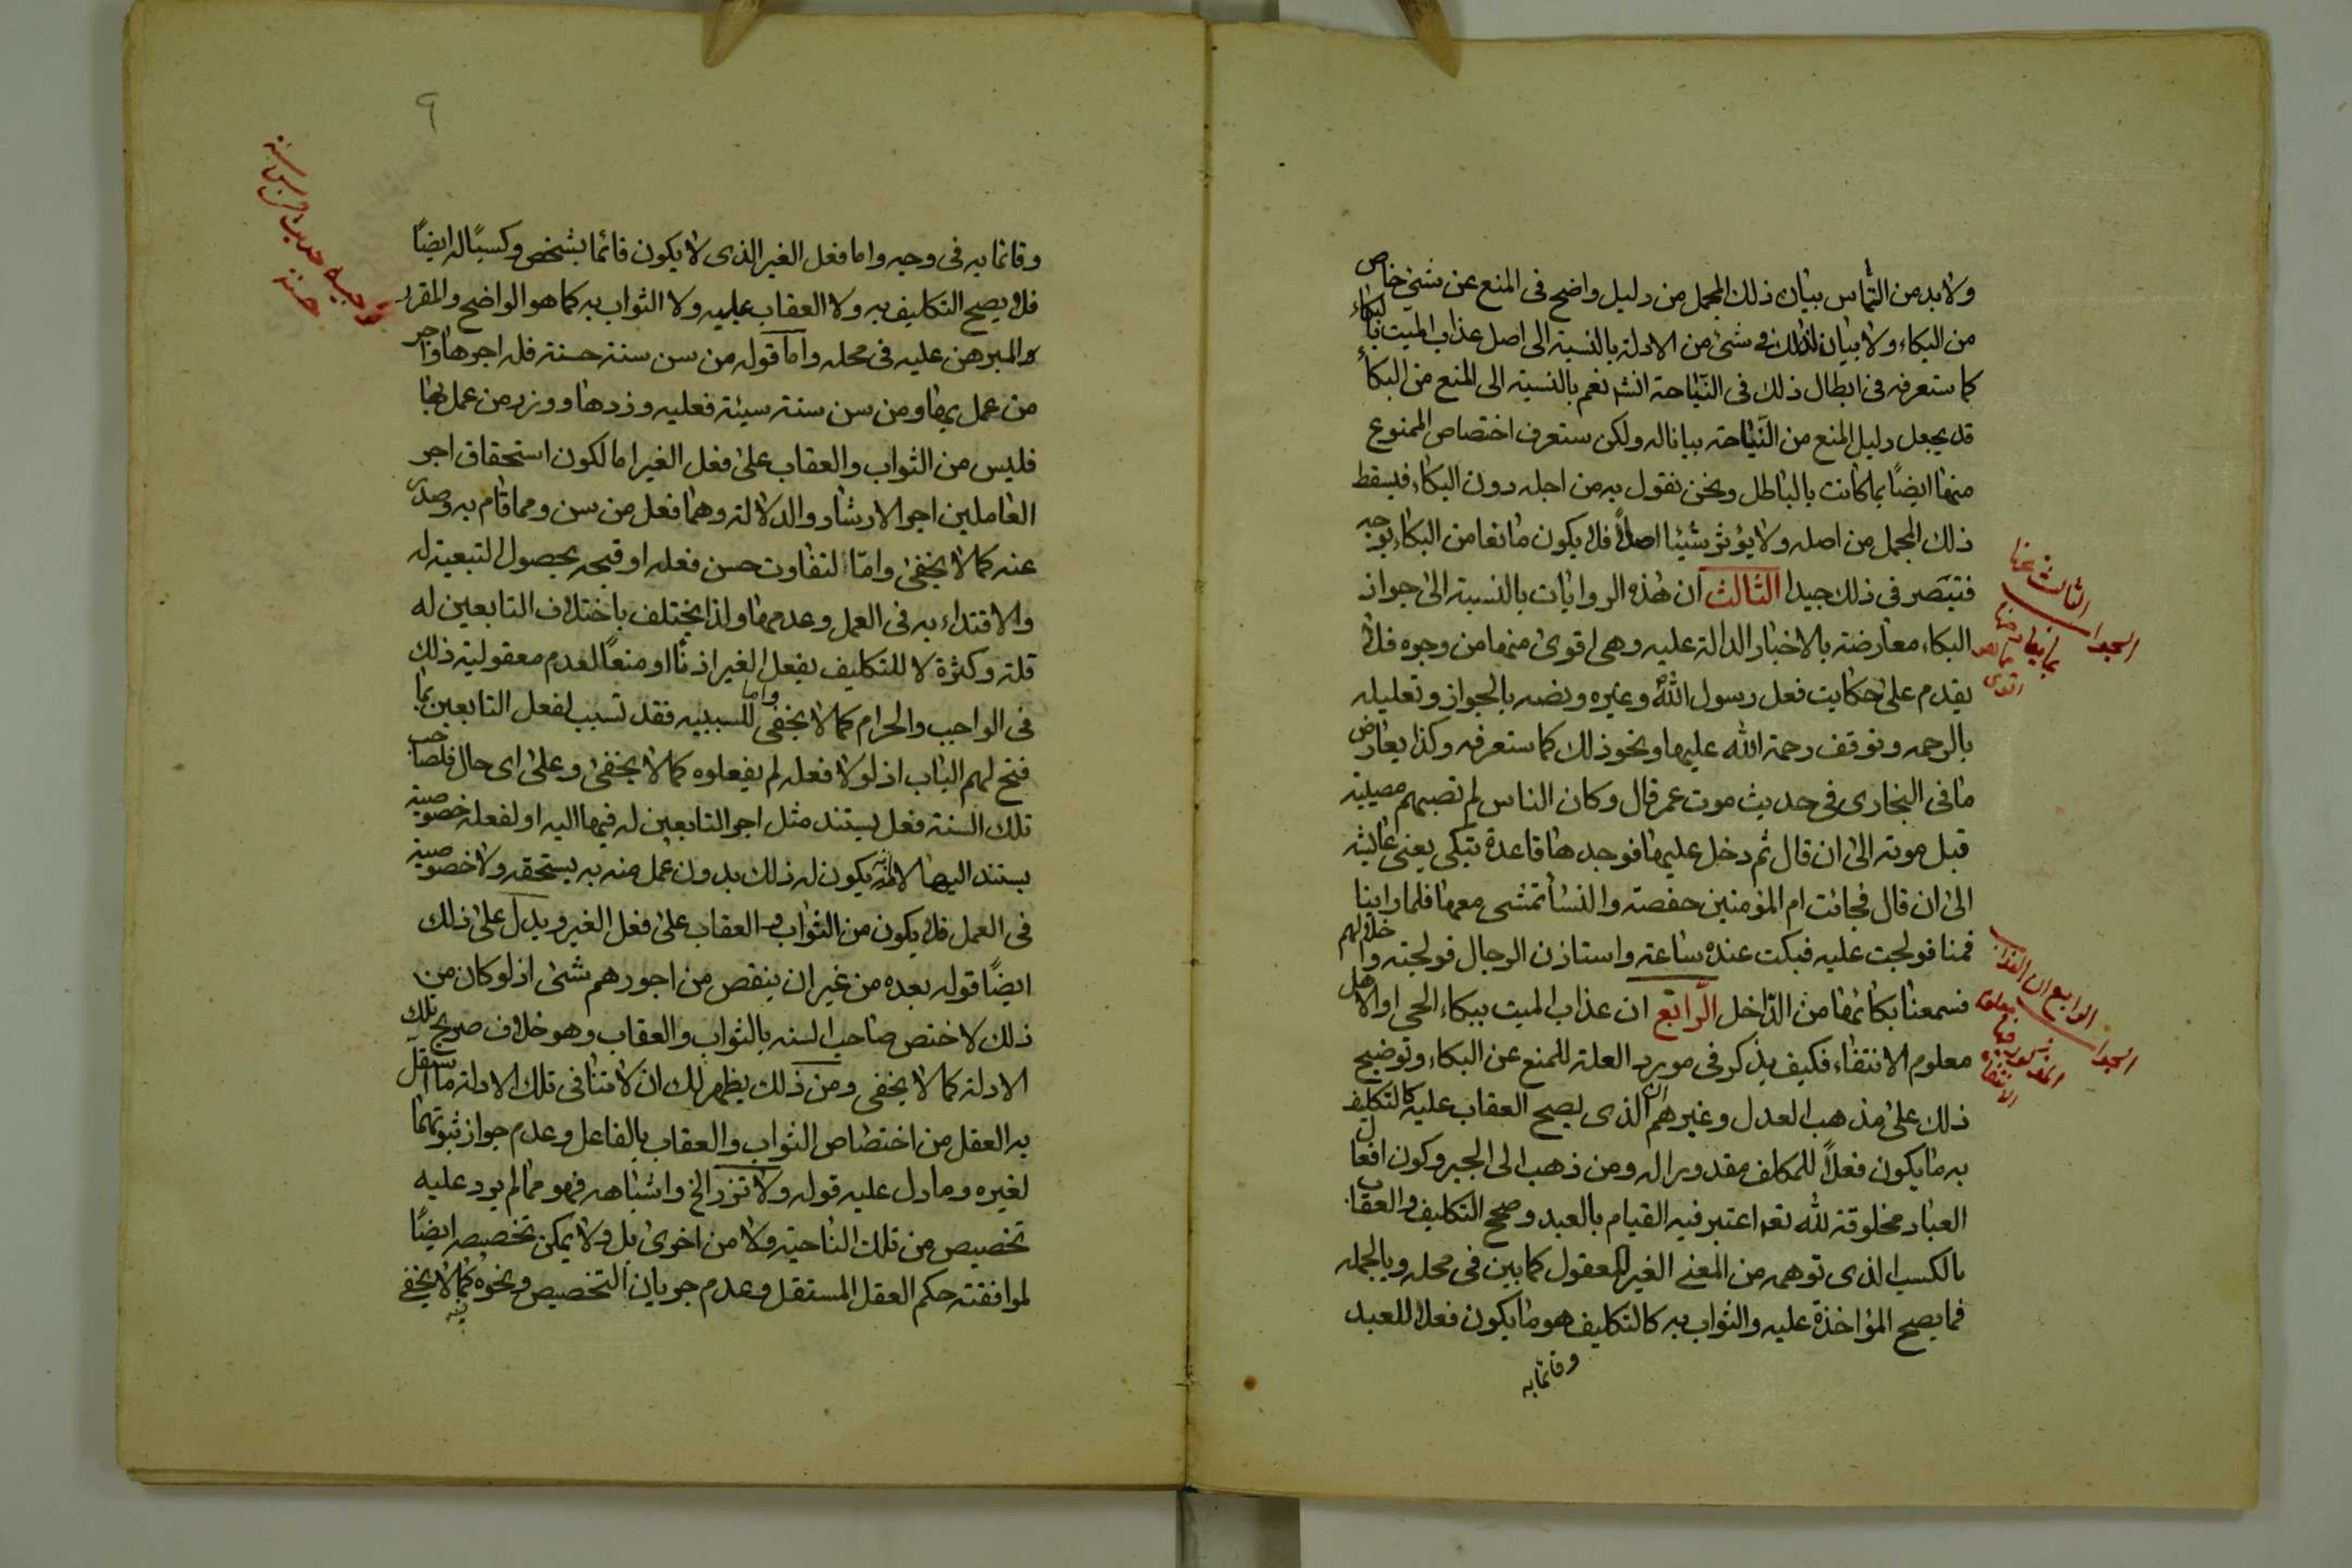 ولابد من التماس بيان ذلك المجمل من دليل واضح فى المنع عن شئ خاص
من البكاء ولا بيان لذلك فى شئ من الادلة بالنسبة الى اصل عذاب الميت بالبكاء
كما ستعرفه فى ابطال ذلك فى النياحة انشم نعم بالنسبة الى المنع من البكاء
قد يجعل دليل المنع من النياحة بيانا له ولكن ستعرف اختصاص الممنوع
منها ايضًا بما كانت بالباطل ونحن نقول به من اجله دون البكاء فيسقط
ذلك المجمل من اصله ولا يؤثر شيئا اصلاً فلا يكون مانعا من البكاء بوجه
فتبصر فى ذلك جيدا الثالث ان هذه الروايات بالنسبة الى جواز
البكاء معارضة بالاخبار الدالة عليه وهى اقوى منها من وجوه فلا
يقدم على حكايت فعل رسول الله ص وغيره ونصه بالجواز وتعليله
بالرحمه وتوقف رحمة الله عليها ونحو ذلك كما ستعرفه وكذا يعارض
ما فى البخارى فى حديث موت عمر قال وكان الناس لم تصبهم مصيبة
قبل موته الى ان قال ثم دخل عليها فوجدها قاعدة تبكى يعنى عايشه
الى ان قال فجائت ام المؤمنين حفصة والنساء تمشى معها فلما راينا
قمنا فولجت عليه فبكت عنده ساعة واستاذن الرجال فولجته داخلا لهم
فسمعنا بكائها من الداخل الرابع ان عذاب الميت ببكاء الحى او الاهل
معلوم الانتفاء فكيف يذكر فى مورد العلة للمنع عن البكاء وتوضيح
ذلك على مذهب العدل وغيرهم ان الذى يصح العقاب عليه كالتكليف
به ما يكون فعلاً للمكلف مقدورا له ومن ذهب الى الجبر وكون افعال
العباد مخلوقة لله تعم اعتبر فيه القيام بالعبد وصحح التكليف والعقاب
بالكسب الذى توهمه من المعنى الغير المعقول كما بين فى محله وبالجمله
فما يصح المؤاخذة عليه والثواب به كالتكليف هو ما يكون فعلا للعبد
وقائما به
الجواب الثالث
الجواب الرابع ان العذاب
٩
وقائما به فى وجه واما فعل الغير الذى لا يكون قائما بشخص وكسبًا له ايضًا
فلا يصح التكليف به ولا العقاب عليه ولا الثواب به كما هو الواضح والمقرر
والمبرهن عليه فى محله واما قوله من سن سنة حسنة فله اجرها واجر
من عمل بها ومن سن سنة سيئة فعليه وزرها ووزر من عمل بها
فليس من الثواب والعقاب على فعل الغير اما لكون استحقاق اجر
العاملين اجر الارشاد والدلالة وهما فعل من سن ومما قام به وصدر
عنه كما لا يخفى واما لتفاوت حسن فعله او قبحه بحصول التبعية له
والاقتداء به فى العمل وعدمها ولذا يختلف باختلاف التابعين له
قلة وكثرة لا للتكليف بفعل الغير اذنًا او منعًا لعدم معقولية ذلك
فى الواجب والحرام كما لا يخفى واما للسببيه فقد تسبب لفعل التابعين بما
فتح لهم الباب اذ لولا فعله لم يفعلوه كما لا يخفى وعلى اى حال فلصاحب
تلك السنة فعل يستند مثل اجر التابعين له فيها اليه او لفعله خصوصية
يستند اليها لا انه يكون له ذلك بدون عمل منه به يستحقه ولا خصوصية
فى العمل فلا يكون من الثواب والعقاب على فعل الغير ويدل على ذلك
ايضًا قوله بعده من غير ان ينقص من اجورهم شئ اذ لو كان من
ذلك لاختص صاحب السنه بالثواب والعقاب وهو خلاف صريح تلك
الادلة كما لا يخفى ومن ذلك يظهر لك ان لا تنافى تلك الادلة ما استقل
به العقل من اختصاص الثواب والعقاب بالفاعل وعدم جواز ثبوتهما
لغيره وما دل عليه قوله ولا تزر الخ واشباهه فهو مما لم يرد عليه
تخصيص من تلك الناحية ولا من اخرى بل ولا يمكن تخصيصه ايضًا
لموافقته حكم العقل المستقل وعدم جريان التخصيص ونحوه فيه كما لا يخفى
توجيه حديث من سن سنة
حسنة